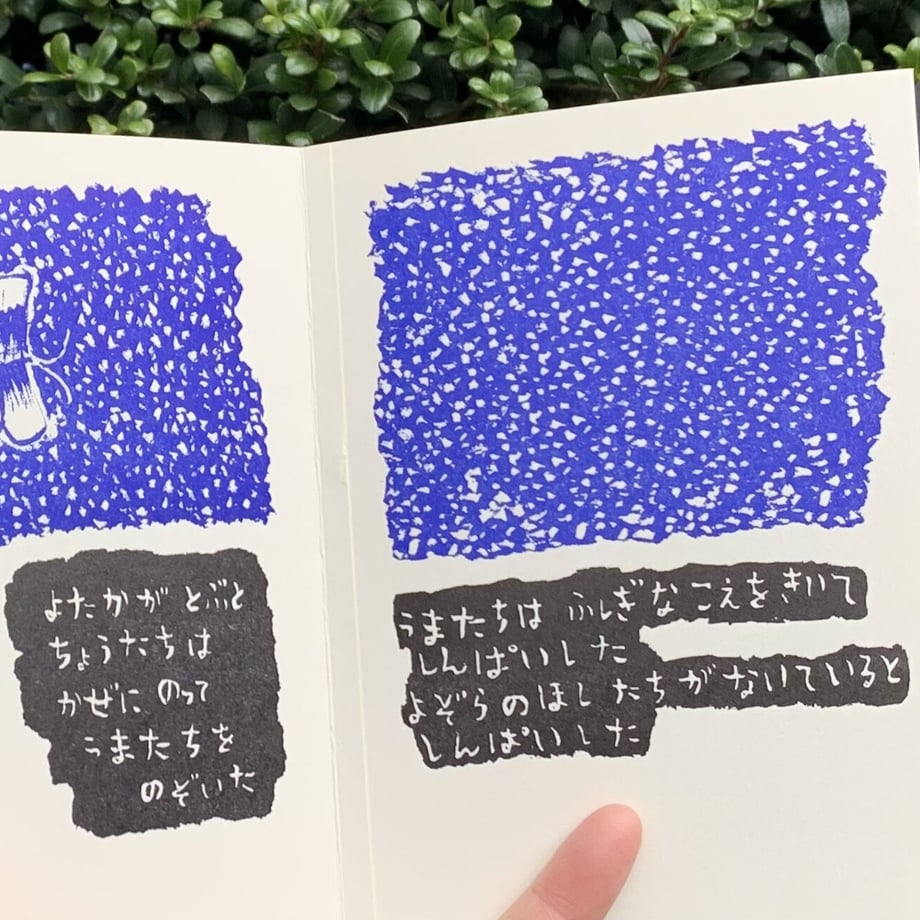 よたかが とぶと
ちょうたちは
かぜに のって
うまたちを
のぞいた
うまたちは ふしぎなこえをきいて
しんぱいした
よぞらのほしたちがないていると
しんぱいした